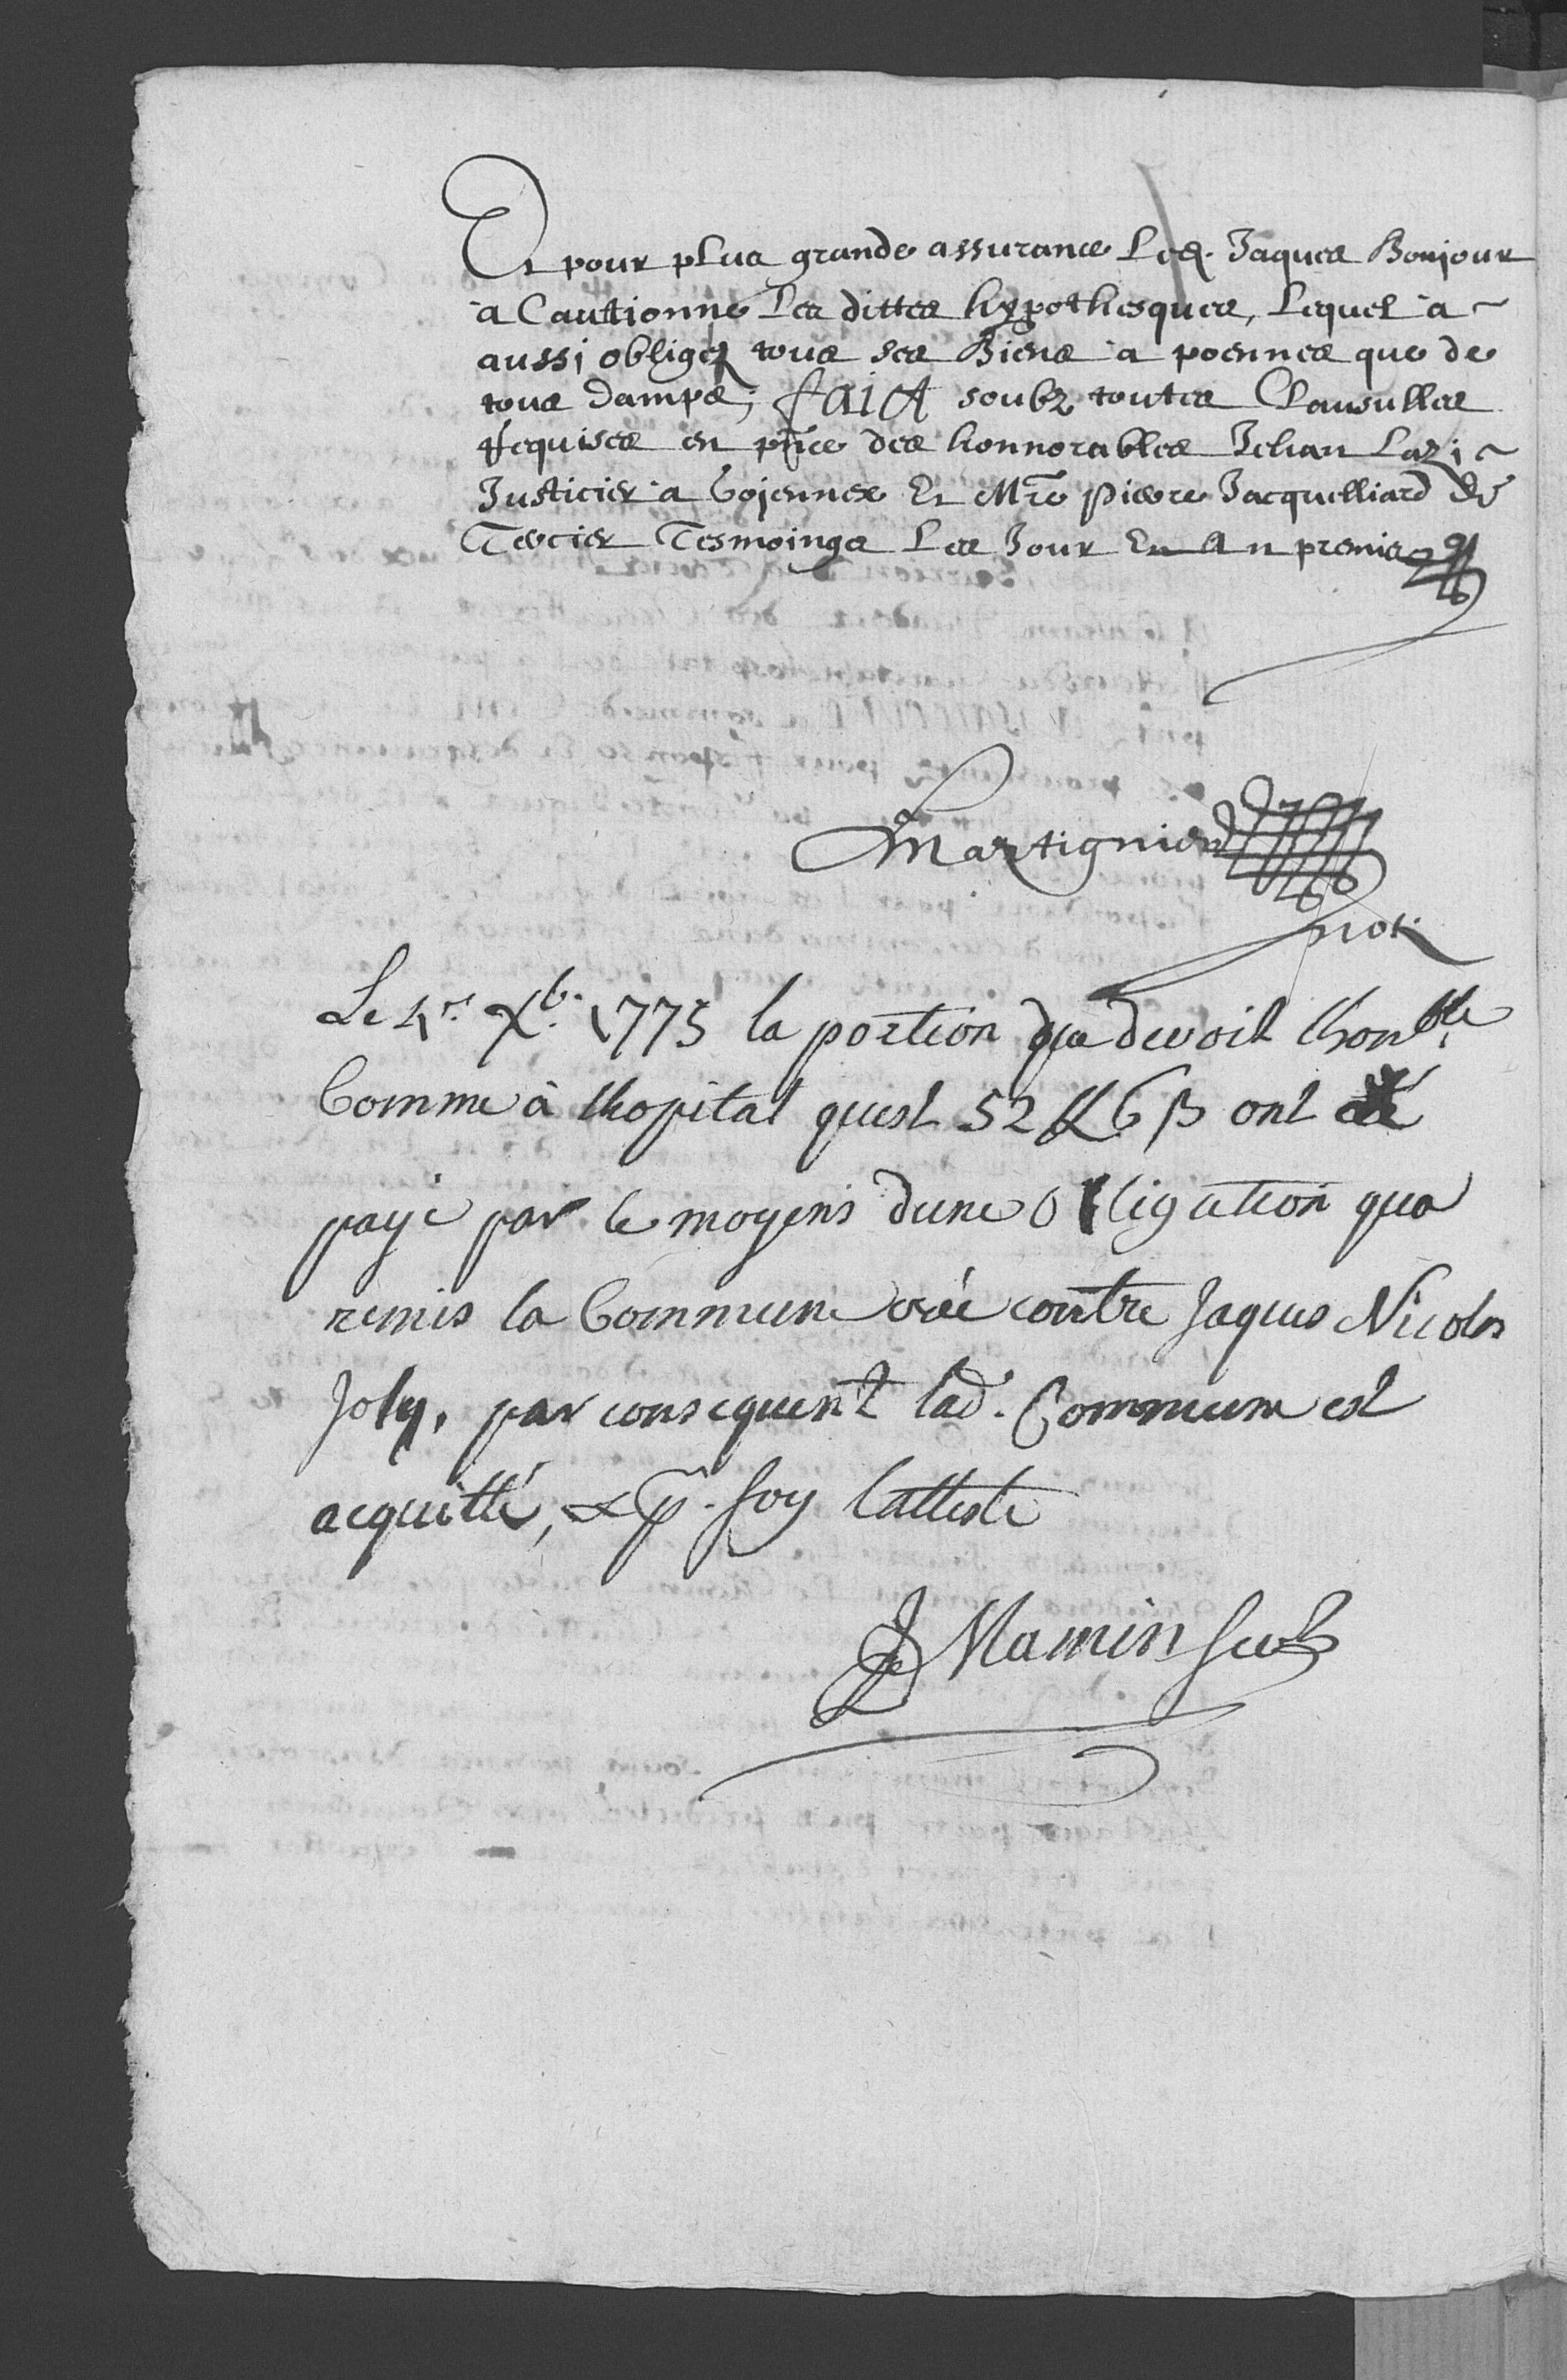 Et pour plus grande assurance Led. Jaques Bonjour
a Cautionné Les dittes hypothesques, Lequel a
aussi obligez tous ses Biens a poennes que de
tous dampz; faict soubz toutes Clausulles
Requises en pnce des honnorables Jehan
Justicier a Et Mre Pierre Jacquelliard de
Tesmoings Les Jour Et An premis
Martignier
not.
Le 4r. Xb. 1773 la portion qua devoit lhonble
Comme à lhopital quest 52 ₶ 6 β ont été
payé par le moyens dune obligation qua
remis la Commune crée contre Jaques Nicolas
Joly, par consequent lad. Commune est
acquitté, foy latteste
Mamin